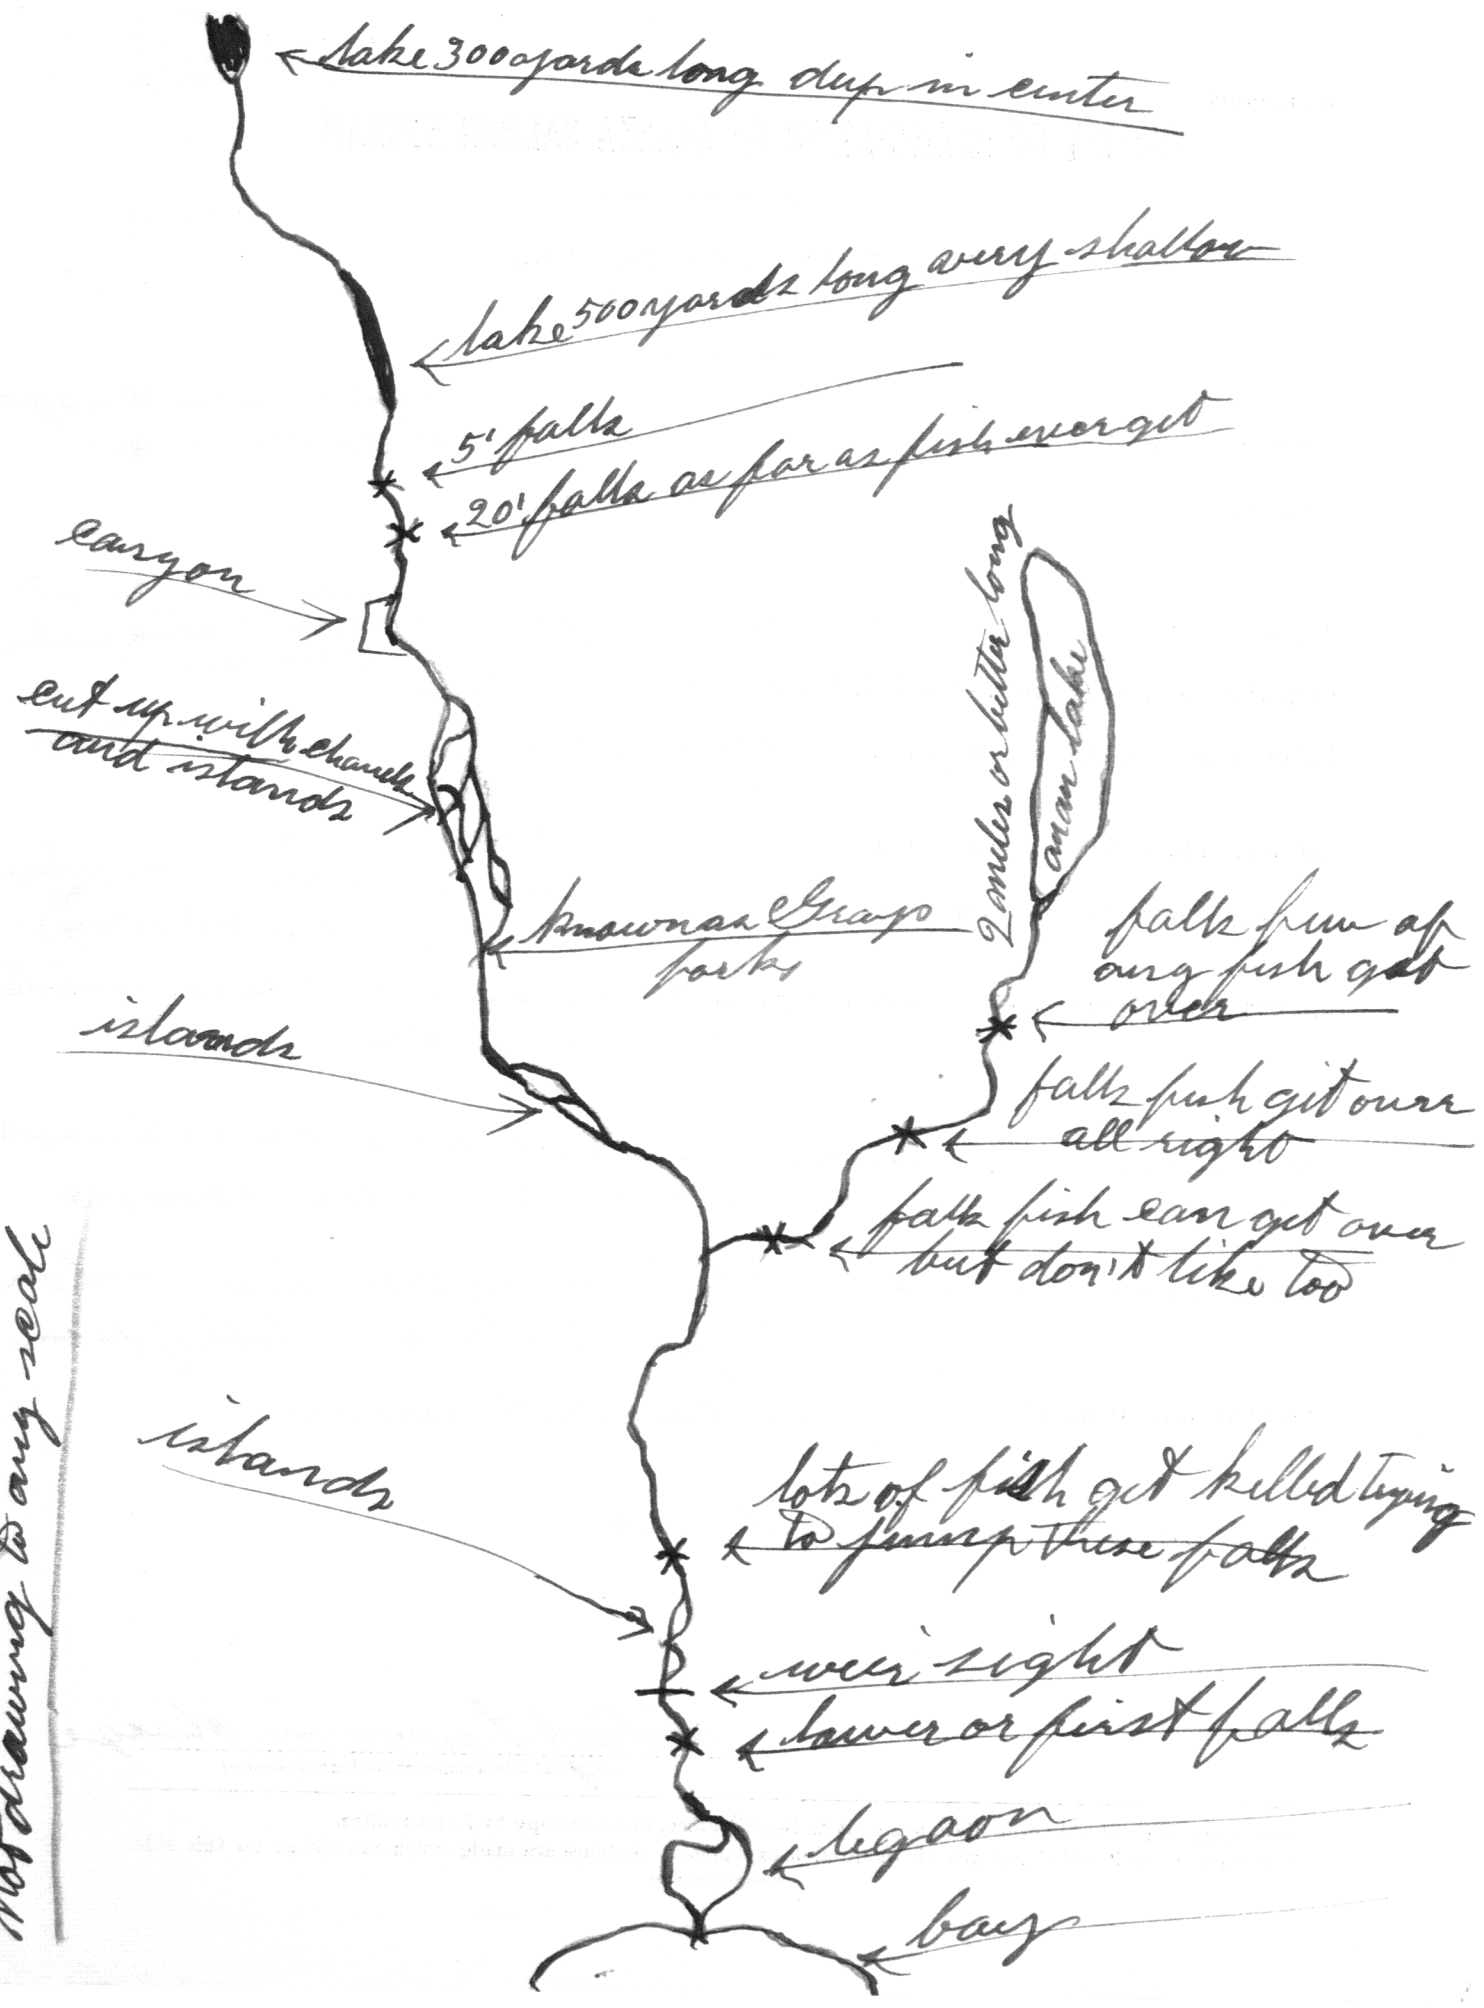 lake 300 yards long deep in center
lake 500 yards long avery shallow
5' falls
20' falls as far as fish ever get
canyon
cut up with chanels
and islands
2 miles or better long
anan lake
known as Grays
forks
falls fuw af
any fish get
over
islands
falls fish git over
all right
falls fish can get over
but don't like too
Not drawing to any scale
islands
lots of fish get killed trying
to jump these falls
weir sight
lower or first falls
legaon
bay